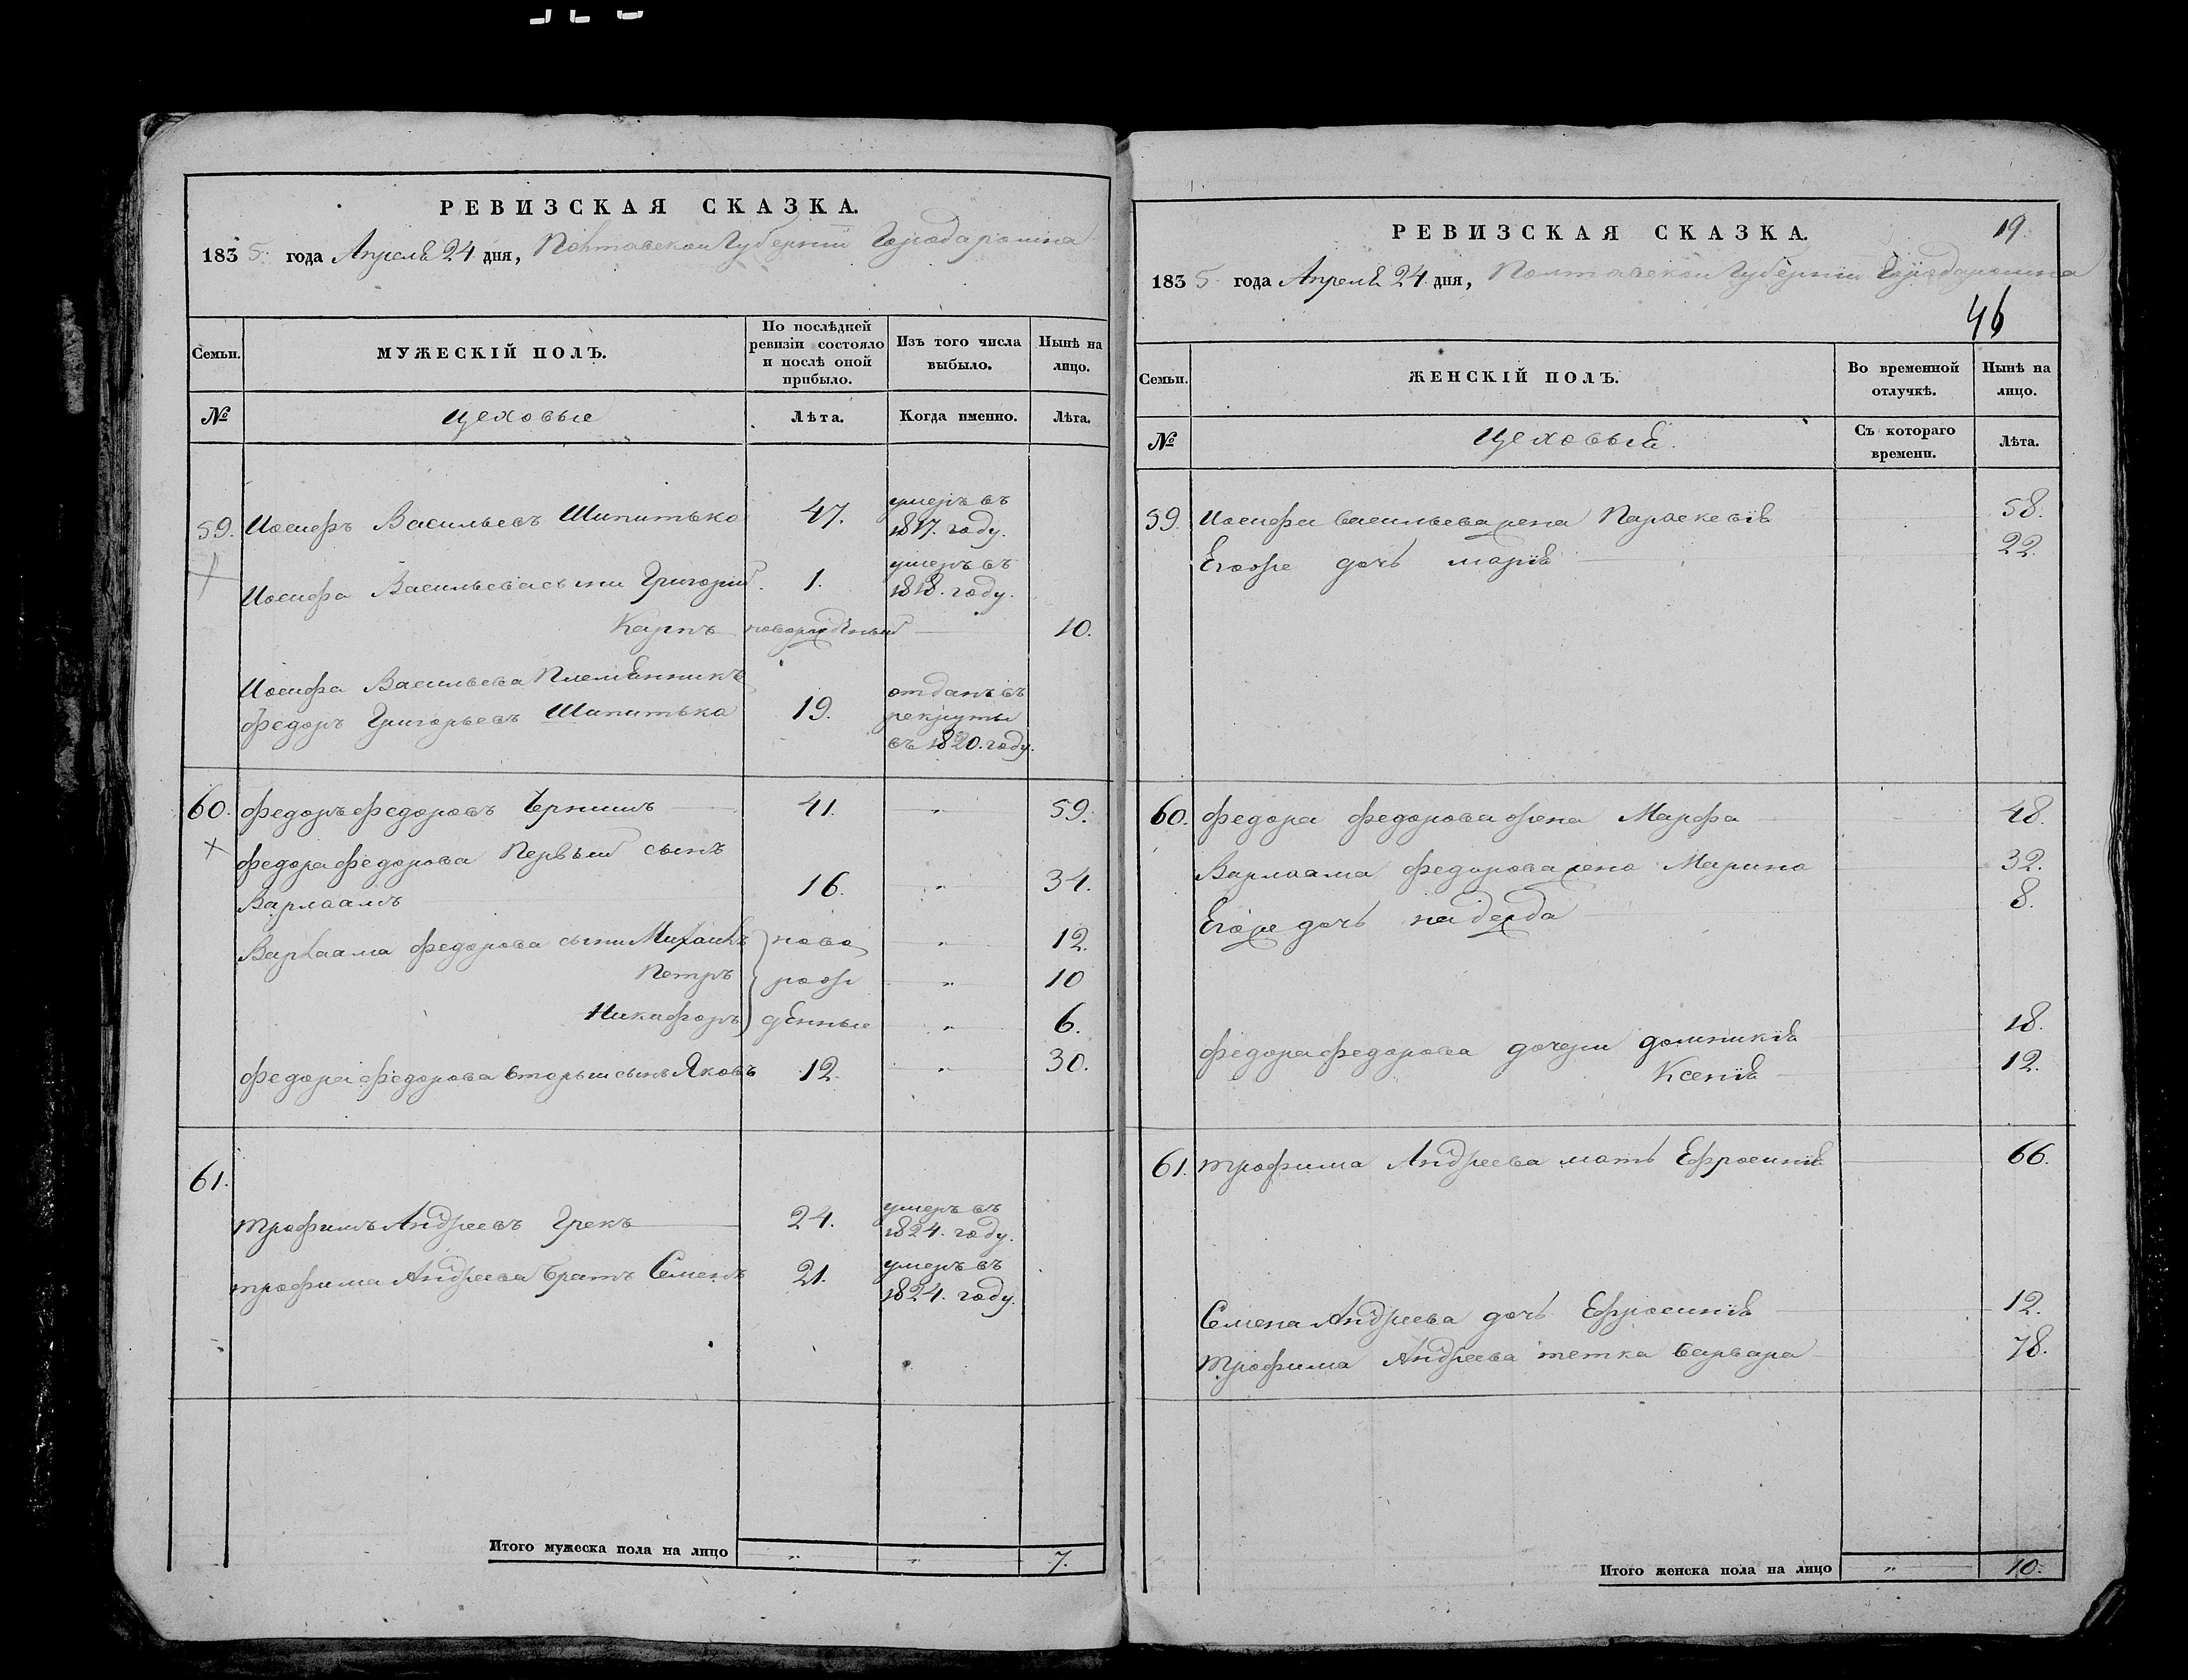 РЕВИЗСКАЯ СКАЗКА.
1835 года Апреля 24 дня, Полтавской Губернии Города ромна
Семьи. МУЖЕСКІЙ ПОЛЪ. По послѣдней ревизіи состояло и послѣ оной прибыло. Изъ того числа выбыло. Нынѣ на лицо.
№ Цеховые Лѣта. Когда именно. Лѣта.
59. Иосифъ Васильевъ Шипитько 47. умеръ въ 1817. году.
Иосифа Васильева сыни Григорий 1. умеръ въ 1818. году.
Карпъ новорожденный 10.
Иосифа Васильева Племянникъ
Федоръ Григорьевъ Шипитька 19. отданъ въ рекруты въ 1820. году.
60. Федоръ Федоровъ Чернишъ 41. " 59.
Федора Федорова Первый сынъ
Варлаамъ 16. " 34.
Варлаама Федорова сыни Михаилъ ново " 12.
Петръ рож " 10
Никифоръ денные " 6.
Федора Федорова вторый сынъ Яковъ 12. " 30.
61.
Трофимъ Андреевъ Грекъ 24. умеръ въ 1824. году.
Трофима Андреева братъ Семенъ 21. умеръ въ 1824. году.
Итого мужеска пола на лицо " " 7.
РЕВИЗСКАЯ СКАЗКА. 19.
1835 года Апреля 24 дня, Полтавской Губернии Города ромна
46
Семьи. ЖЕНСКІЙ ПОЛЪ. Во временной отлучкѣ. Нынѣ на лицо.
№ Цеховыя. Съ котораго времени. Лѣта.
59. Иосифа Васильева жена Параскевія 58.
Егоже дочь марія 22.
60. Федора Федорова жена Марфа 48.
Варлаама Федорова жена Марина 32.
Егоже дочь надежда 8.
Федора Федорова дочери домникія 18.
Ксенія 12.
61. Трофима Андреева мать Ефросинія 66.
Семена Андреева дочь Ефросинія 12.
Трофима Андреева тетка варвара 78.
Итого женска пола на лицо " 10.